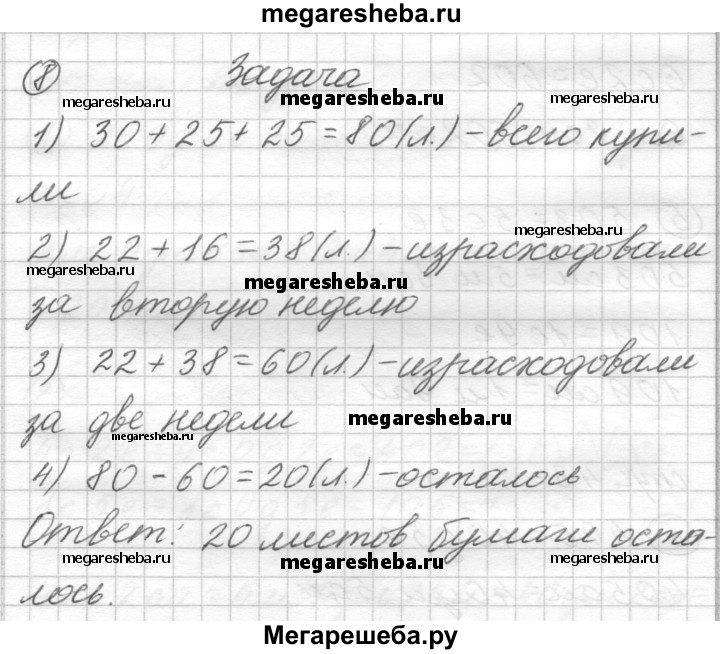 megaresheba.ru
8 Задача
megaresheba.ru megaresheba.ru megaresheba.ru
1) 30 + 25 + 25 = 80 (л.) – всего купи-
ли
2) 22 + 16 = 38 (л.) – израсходовали
megaresheba.ru megaresheba.ru megaresheba.ru
за вторую неделю
3) 22 + 38 = 60 (л.) – израсходовали
за две недели megaresheba.ru
megaresheba.ru
4) 80 – 60 = 20 (л.) – осталось
Ответ: 20 листов бумаги оста-
megaresheba.ru megaresheba.ru megaresheba.ru
лось.
Мегарешеба.ру